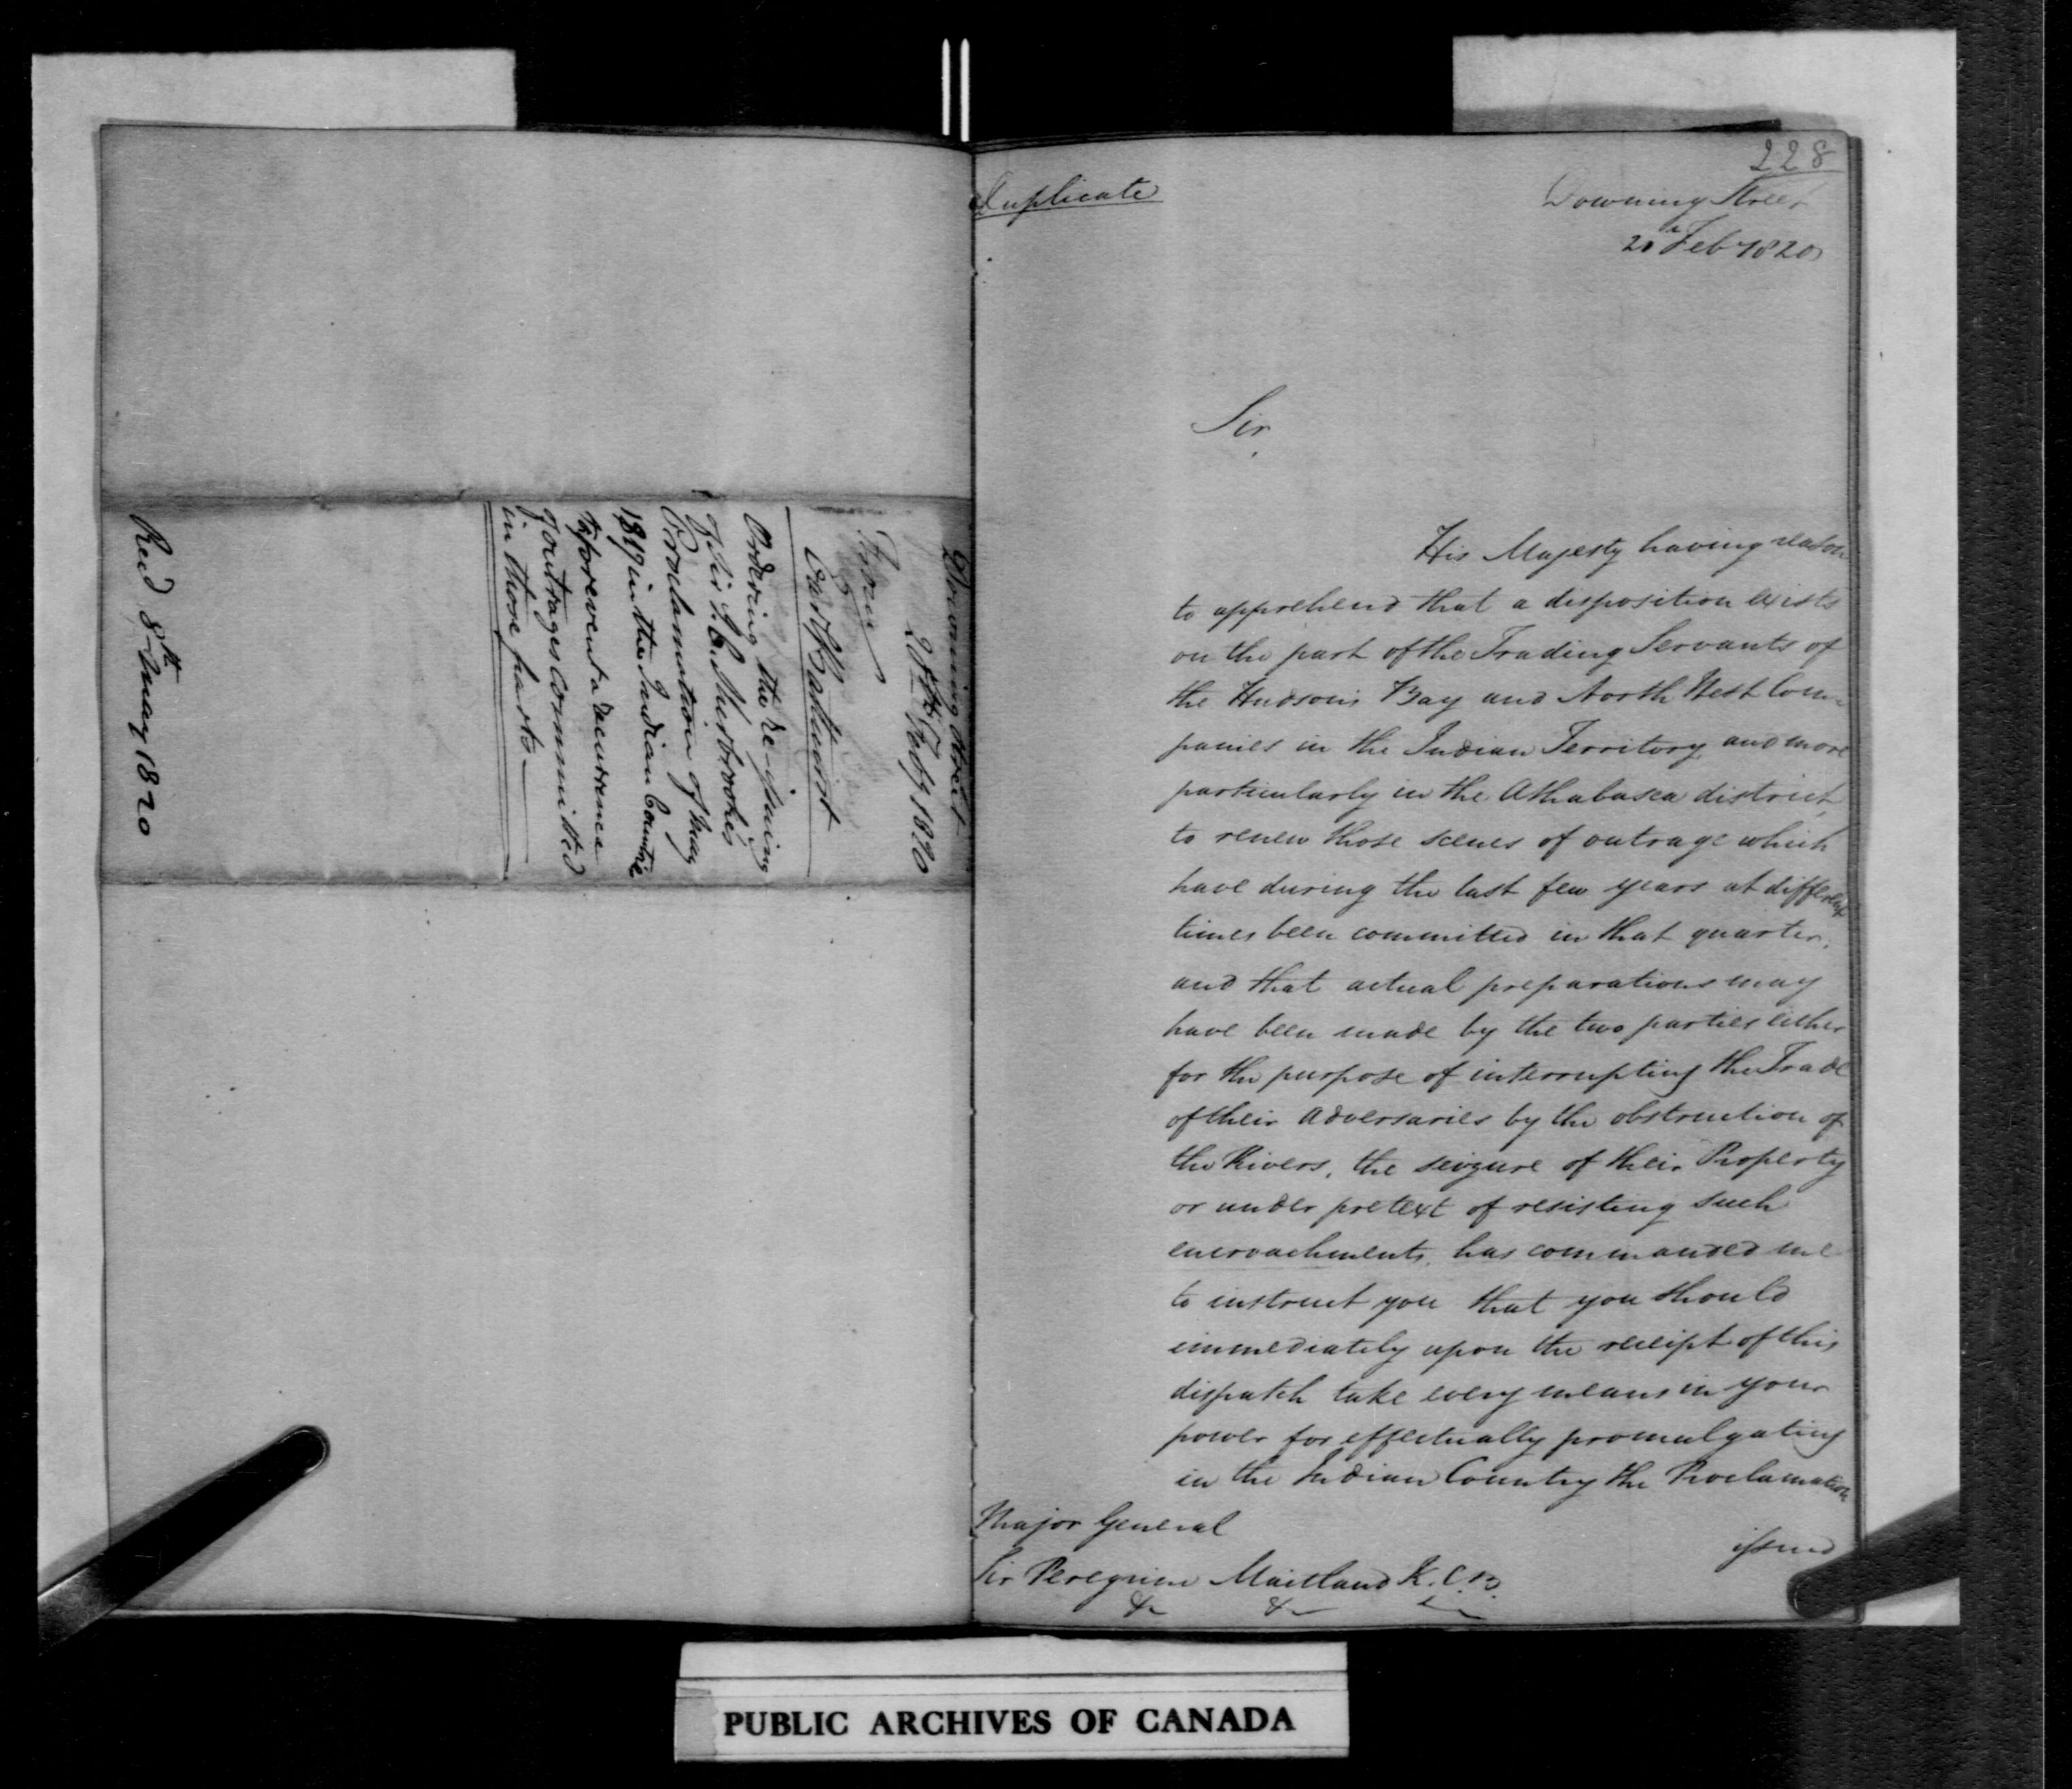 Downing Street
Feby 1820
From
Earl Bathurst
Ordering the re-issuing
of Sir J. C. Sherbrooke's
Proclamation of May
1817 in the Indian Countrie
to prevent a recurrence
of outrages committed
in those parts—
Recd 8th May 1820
228
Duplicate
Downing Street
Feb 1820
Sir,
His Majesty having reason
to apprehend that a disposition exists
on the part of the Trading Servants of
the Hudson's Bay and North West Com-
panies in the Indian Territory, and more
particularly in the Athabasca district,
to renew those scenes of outrage which
have during the last few years at different
times been committed in that quarter,
and that actual preparations may
have been made by the two parties either
for the purpose of interrupting the Trade
of their adversaries by the obstruction of
the Rivers, the seizure of their Property
or under pretext of resisting such
encroachments, has commanded me
to instruct you that you should
immediately upon the receipt of this
dispatch take every means in your
power for effectually promulgating
in the Indian Country the Proclamation
issued
Major General
Sir Peregrine Maitland K.C.B.
&c &c &c
PUBLIC ARCHIVES OF CANADA